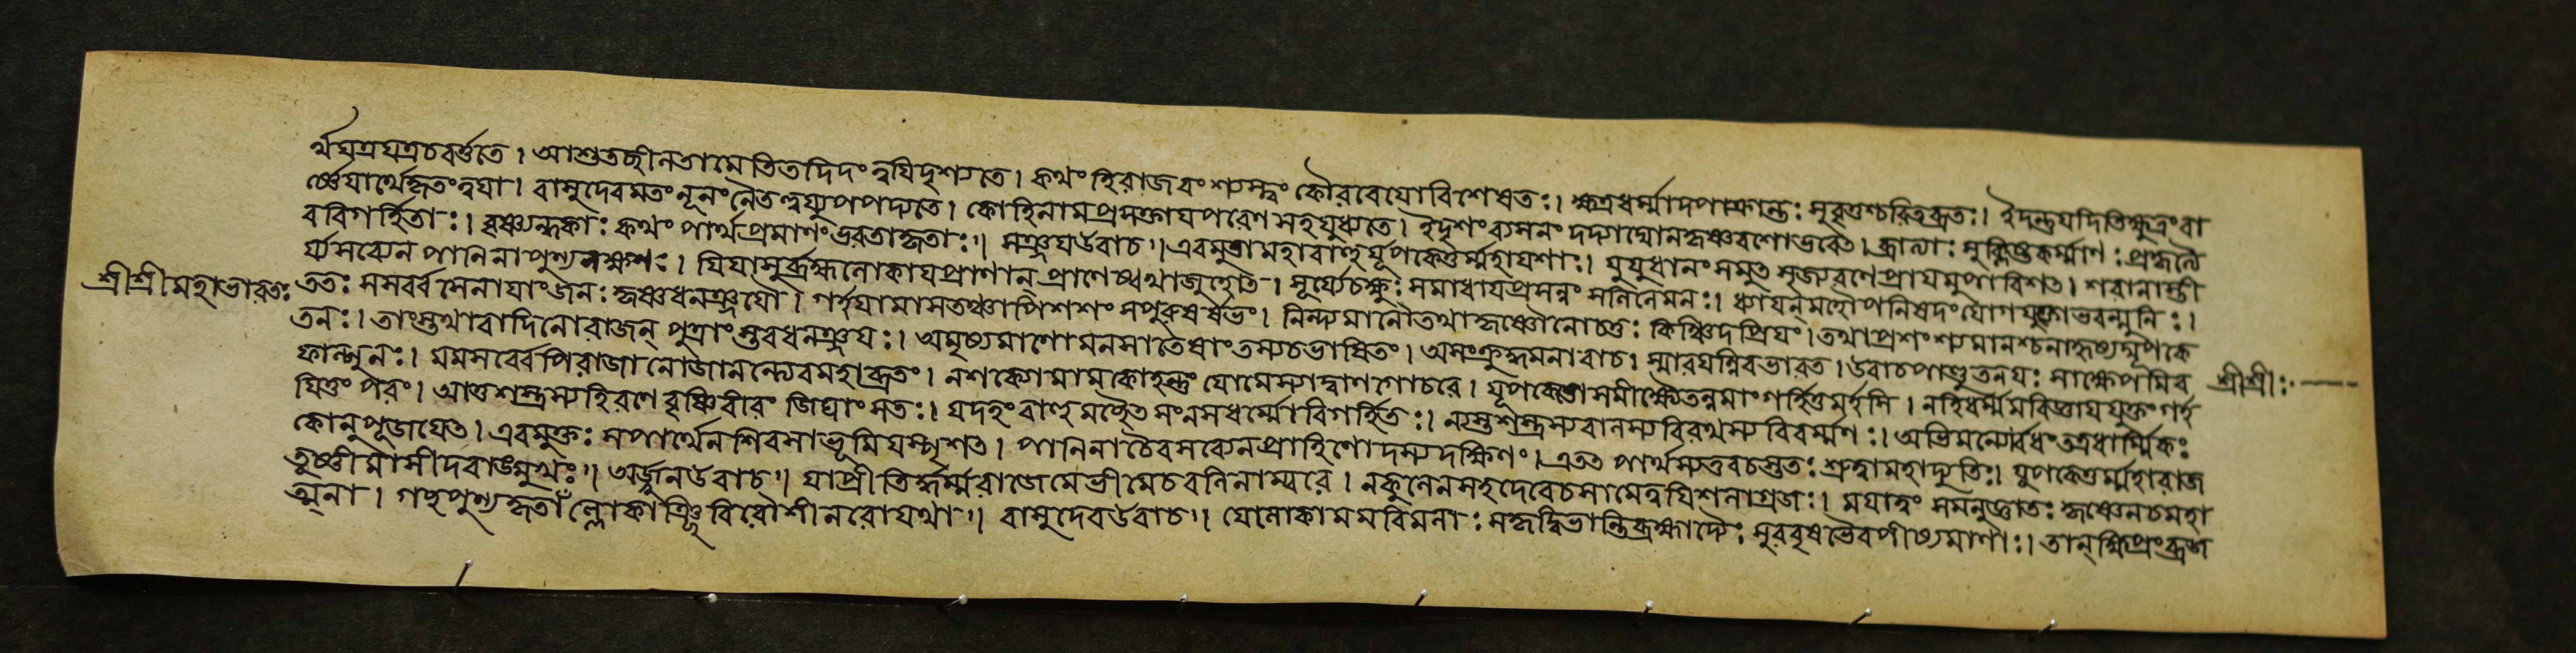 র্থঘত্রযত্রচবর্ত্ততে। আশুতচ্ছীনতামেতিতদিদংত্বযিদৃশ্যতে। কথংহিরাজবংশ্যস্ত্বংকৌরবেযোবিশেষতঃ। ক্ষত্রধর্ম্মাদপাক্রান্তঃ সুবৃত্তশ্চরিতব্রতঃ। ইদন্তুযদিতিক্ষুদ্রংবা
র্ষ্ণেযার্থেকৃতংত্বযা। বাসুদেবমতংনূনংনৈতত্ত্বয্যুপপদ্যতে। কোহিনামপ্রমত্তাযপরেণসহযুধ্যতে। ইদৃশংব্যসনংদদ্যাদ্যোনকৃষ্ণসখোভবেৎ। ব্রাত্যাঃ সংক্লিষ্টকর্ম্মাণঃ প্রকৃত্যৈ
ববিগর্হিতাঃ। বৃষ্ণ্যন্ধকাঃ কথংপার্থপ্রমাণংভবতাকৃতাঃ॥ সঞ্জযউবাচ॥ এবমুক্ত্বামহাবাহুর্যূপকেতুর্ম্মহাযশাঃ। যুযুধানংসমুৎসৃজ্যরণেপ্রাযমুপাবিশৎ। শরানাস্তী
র্য্যসব্যেনপানিনাপুণ্যলক্ষণঃ। যিযাসুর্ব্রহ্মলোকাযপ্রাণান্প্রাণেষ্বথাজুহোৎ। সূর্য্যেচক্ষুঃ সমাধাযপ্রসন্নংসলিলেমনঃ। ধ্যাযন্মহোপনিষদংযোগযুক্তোভবন্মুনিঃ।
শ্রীশ্রীমহাভারতঃ
ততঃ সসর্ব্বসেনাযাংজনঃ কৃষ্ণধনঞ্জযৌ। গর্হযামাসতঞ্চাপিশশংসপুরুষর্ষভং। নিন্দ্যমানৌতথাকৃষ্ণৌনোচতুঃ কিঞ্চিদপ্রিযং। তথাপ্রশংশ্যমানশ্চনাহৃষ্যদ্যূপকে
তনঃ। তাংস্তথাবাদিনোরাজন্ পুত্রাংস্তবধনঞ্জযঃ। অমৃষ্যমাণোমনসাতেষাংতস্যচভাষিতং। অসংক্রুদ্ধমনাবাচা স্মারযন্নিবভারত। উবাচপাণ্ডুতনযঃ সাক্ষেপমিব
শ্রীশ্রীঃ
ফাল্গুনঃ। মমসর্ব্বেপিরাজানোজানন্ত্যেবমহাব্রতং। নশক্যোমামকোহন্তুংযোমেস্যাদ্বাণগোচরে। যূপকেতোসমীক্ষ্যৈতন্নমাংগর্হিতুমর্হসি। নহিধর্ম্মমবিজ্ঞাযযুক্তংগর্হ
যিতুংপরং। আত্তশস্ত্রস্যহিরণেবৃষ্ণিবীরংজিঘাংসতঃ। যদহংবাহুমচ্ছৈৎসংনসধর্ম্মোবিগর্হিতঃ। ন্যস্তশস্ত্রস্যবালস্যবিরথস্যবিবর্ম্মণঃ। অভিমন্যোর্বধংতত্রধার্ম্মিকঃ
কোনুপূজযেৎ। এবমুক্তঃ সপার্থেনশিরসাভূমিমস্পৃশৎ। পানিনাচৈবসব্যেনপ্রাহিণোদস্যদক্ষিণং। এতৎ পার্থস্যতুবচস্ততঃ শ্রুত্বামহাদ্যুতিঃ। যূপকেতুর্ম্মহারাজ
তুষ্ণীমাসীদবাঙ্মুখঃ॥ অর্জ্জুনউবাচ॥ যাপ্রীতির্ধর্ম্মরাজেমেভীমেচবলিনাম্বরে। নকুলেসহদেবেচসামেত্বযিশলাগ্রজঃ। মযাত্বংসমনুজ্ঞাতঃ কৃষ্ণেনচমহা
ত্মনা। গচ্ছপুণ্যকৃতাঁল্লোকাঞ্ছিবিরৌশীনরোযথা॥ বাসুদেবউবাচ॥ যেলোকামমবিমলাঃ সকৃদ্বিভান্তিব্রহ্মাদ্যৈঃ সুরবৃষভৈরপীষ্যমাণাঃ। তান্ক্ষিপ্রংব্রজ